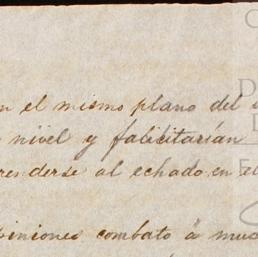 en el mismo plano del
nivel y falicitarían
derse al echado en el
piniones combato á muc